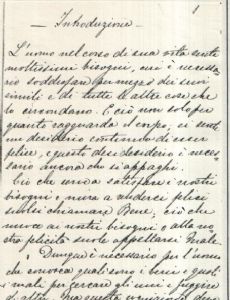 1
— Introduzione —
L'uomo nel corso di sua vita sente
moltissimi bisogni, cui è necessa-
rio soddisfar per mezzo dei suoi
simili e di tutte le altre cose che
lo circondano. E ciò non solo per
quanto ragguarda il corpo, si sente
un desiderio continuo di esser
felice, e questo desiderio è neces-
sario ancora che si appaghi.
Ciò che serve a satisfare i nostri
bisogni e mira a renderci felici
suolsi chiamare Bene, ciò che
nuoce ai nostri bisogni e alla no-
stra felicità suole appellarsi Male.
Dunque è necessario per l'uomo
che conosca quali sono i beni e quali
i mali per cercare gli uni e fuggire